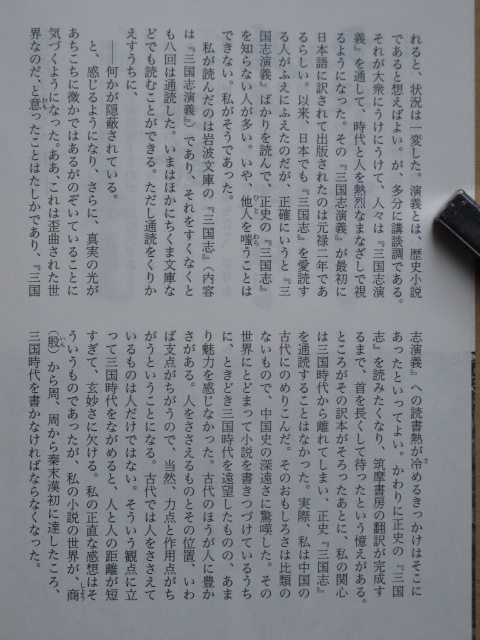 れると、状況は一変した。演義とは、歴史小説
であると想えばよい。が、多分に講談調である。
それが大衆にうけにうけて、人々は『三国志演
義』を通して、時代と人を熱烈なまなざしで視
るようになった。その『三国志演義』が最初に
日本語に訳されて出版されたのは元禄二年であ
るらしい。以来、日本でも『三国志』を愛読す
る人がふえにふえたのだが、正確にいうと『三
国志演義』ばかりを読んで、正史の『三国志』
を知らない人が多い。いや、他人を嗤うことは
できない。私がそうであった。
私が読んだのは岩波文庫の『三国志』（内容
は『三国志演義』）であり、それをすくなくと
も八回は通読した。いまはほかにちくま文庫な
どでも読むことができる。ただし通読をくりか
えすうちに、
――何かが隠蔽されている。
と、感じるようになり、さらに、真実の光が
あちこちに微かではあるがのぞいていることに
気づくようになった。ああ、これは歪曲された世
界なのだ、と意ったことはたしかであり、『三国
志演義』への読書熱が冷めるきっかけはそこに
あったといってよい。かわりに正史の『三国
志』を読みたくなり、筑摩書房の翻訳が完成す
るまで、首を長くして待ったという憶えがある。
ところがその訳本がそろったあとに、私の関心
は三国時代から離れてしまい、正史『三国志』
を通読することはなかった。実際、私は中国の
古代にのめりこんだ。そのおもしろさは比類の
ないもので、中国史の深遠さに驚嘆した。その
世界にとどまって小説を書きつづけているうち
に、ときどき三国時代を遠望したものの、あま
り魅力を感じなかった。古代のほうが人に豊か
さがある。人をささえるものとその位置、いわ
ば支点がちがうので、当然、力点と作用点がち
がうということになる。古代では人をささえて
いるものは人だけではない。そういう観点に立
って三国時代をながめると、人と人の距離が短
すぎて、玄妙さに欠ける。私の正直な感想はそ
ういうものであったが、私の小説の世界が、商
（殷）から周、周から秦末漢初に達したころ、
三国時代を書かなければならなくなった。